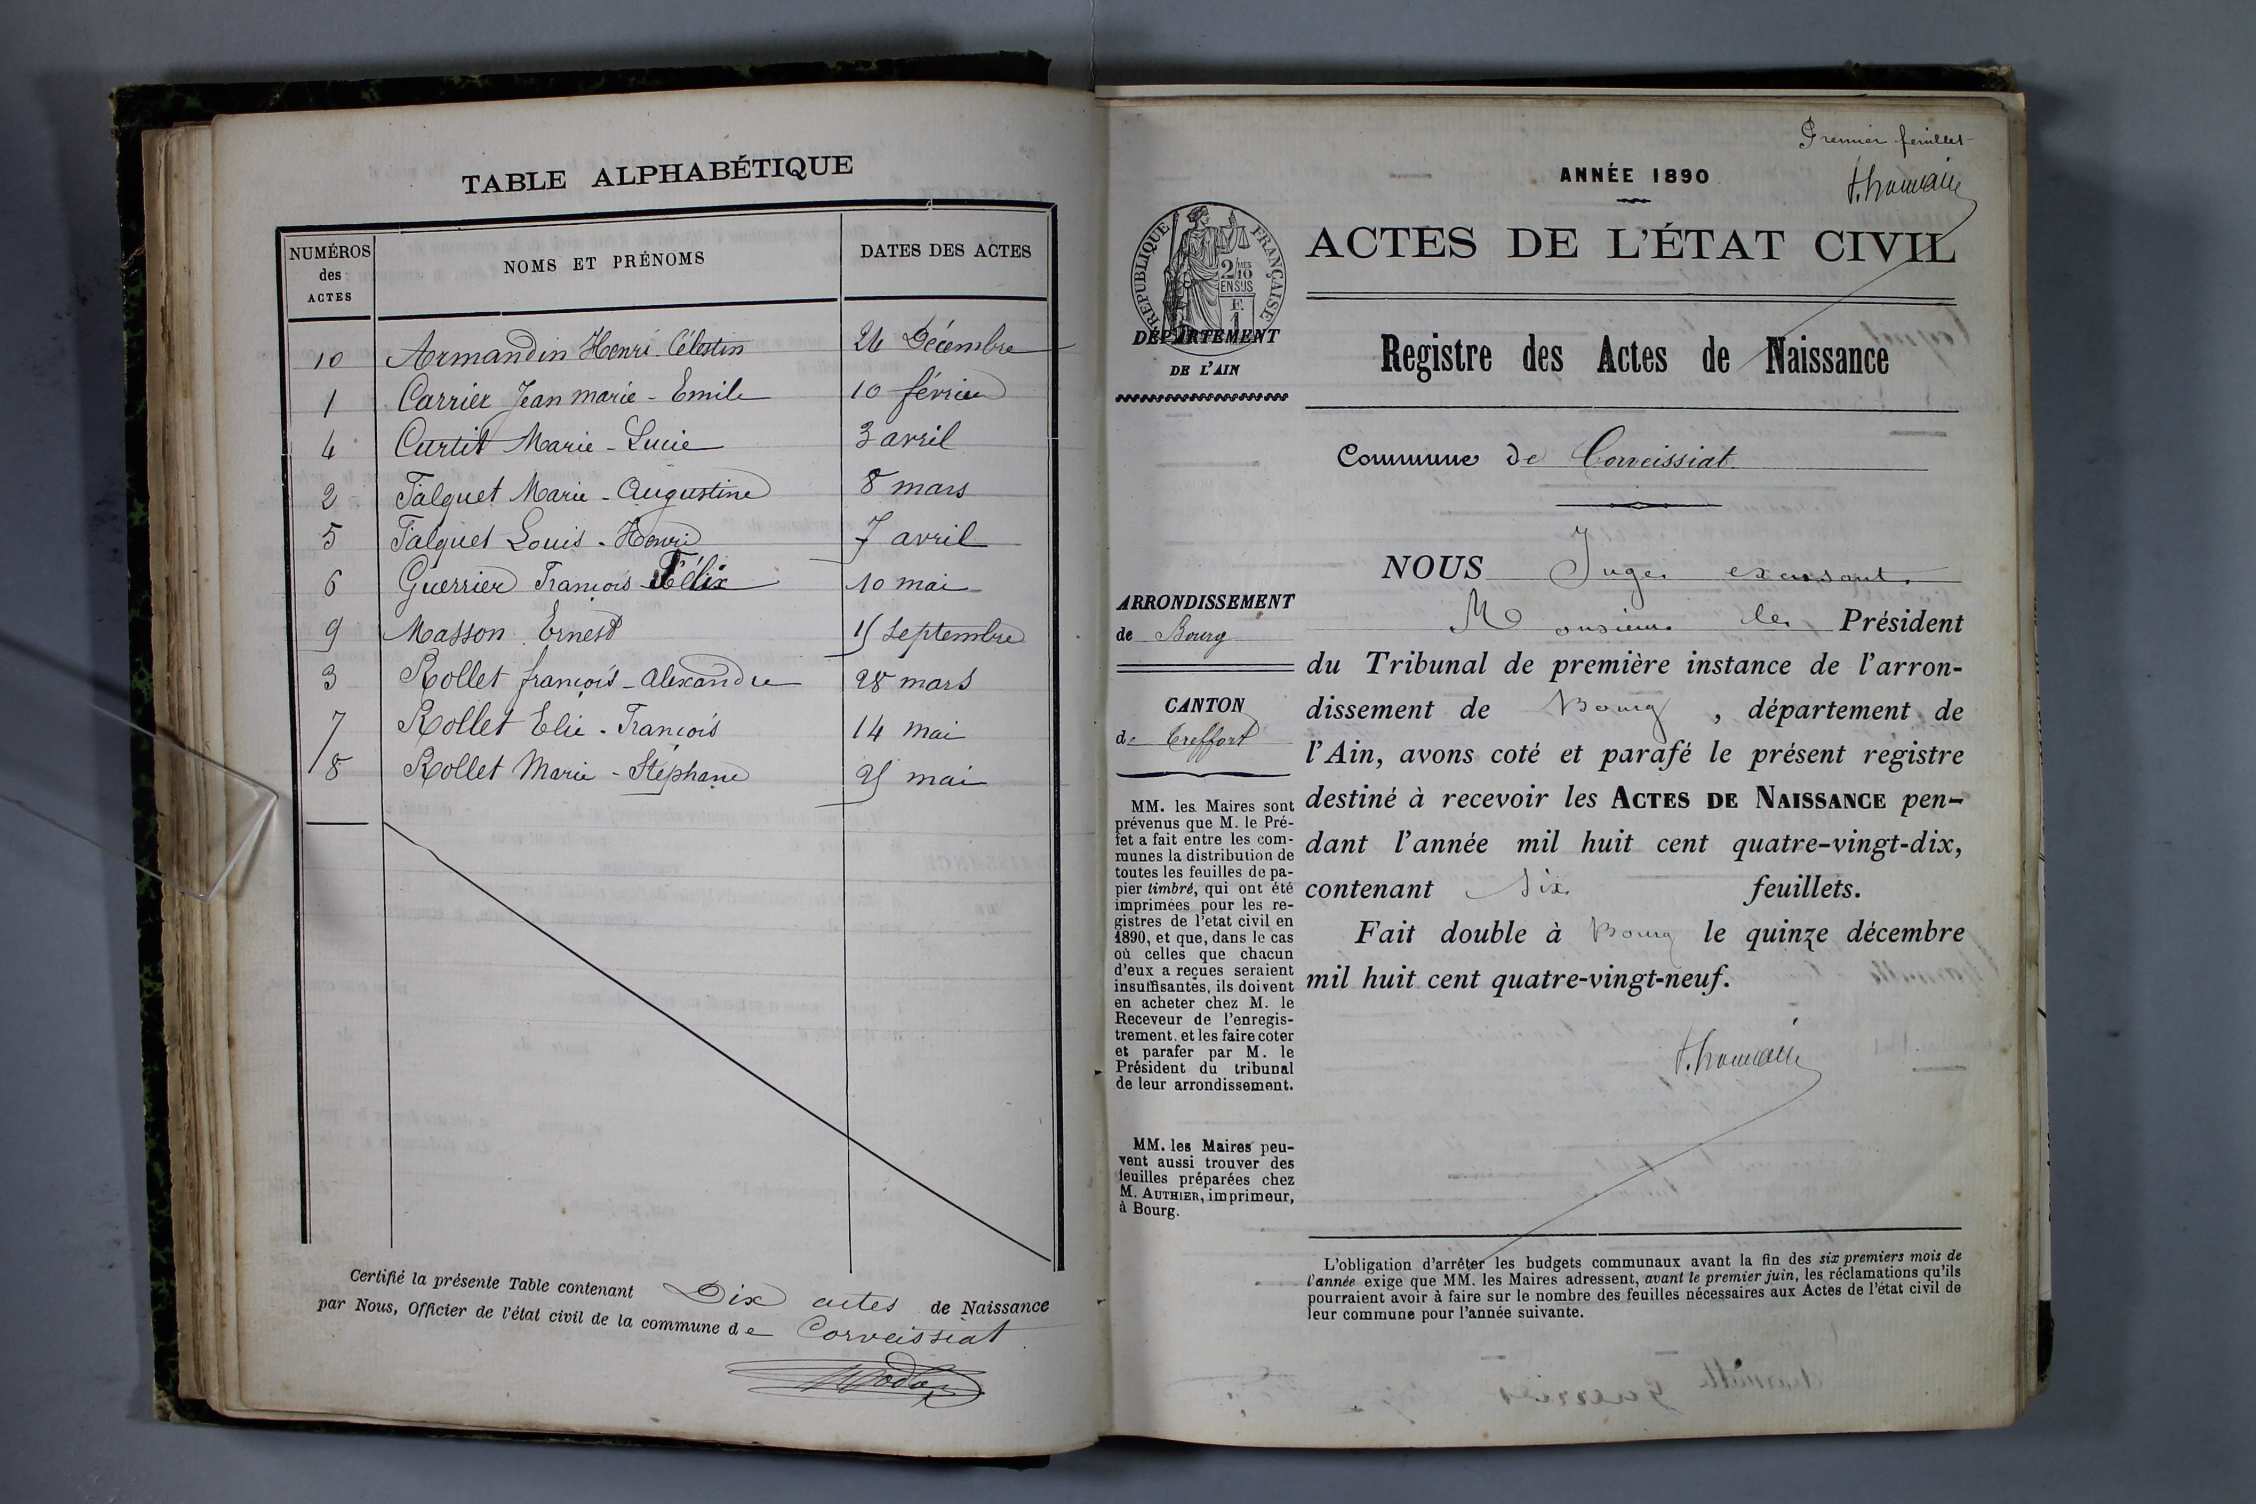 TABLE ALPHABÉTIQUE
NUMÉROS des ACTES NOMS ET PRÉNOMS DATES DES ACTES
10 Armandin Henri Célestin 26 Décembre
1 Carrier Jean marie - Emile 10 février
4 Curtit Marie - Lucie 3 avril
2 Falquet Marie - Augustine 8 mars
5 Falquet Louis - Henri 7 avril
6 Guerrier François Félix 10 mai
9 Masson Ernest 15 Septembre
3 Rollet françois - alexandre 28 mars
7 Rollet Elie - François 14 mai
8 Rollet Marie - Stéphane 25 mai
Certifié la présente Table contenant Dix actes de Naissance
par Nous, Officier de l'état civil de la commune de Corveissiat
Premier feuillet
ANNÉE 1890
RÉPUBLIQUE FRANÇAISE
2/10 MES
EN SUS
F
1
ACTES DE L'ÉTAT CIVIL
DÉPARTEMENT
DE L'AIN
Registre des Actes de Naissance
Commune de Corveissiat
NOUS Juge
ARRONDISSEMENT
de Bourg
Monsieur le Président
du Tribunal de première instance de l'arron-
dissement de Bourg, département de
l'Ain, avons coté et parafé le présent registre
destiné à recevoir les ACTES DE NAISSANCE pen-
dant l'année mil huit cent quatre-vingt-dix,
contenant six feuillets.
Fait double à Bourg le quinze décembre
mil huit cent quatre-vingt-neuf.
CANTON
de Treffort
MM. les Maires sont
prévenus que M. le Pré-
fet a fait entre les com-
munes la distribution de
toutes les feuilles de pa-
pier timbré, qui ont été
imprimées pour les re-
gistres de l'etat civil en
1890, et que, dans le cas
où celles que chacun
d'eux a reçues seraient
insuffisantes, ils doivent
en acheter chez M. le
Receveur de l'enregis-
trement. et les faire coter
et parafer par M. le
Président du tribunal
de leur arrondissement.
MM. les Maires peu-
vent aussi trouver des
feuilles préparées chez
M. AUTHIER, imprimeur,
à Bourg.
L'obligation d'arrêter les budgets communaux avant la fin des six premiers mois de
l'année exige que MM. les Maires adressent, avant le premier juin, les réclamations qu'ils
pourraient avoir à faire sur le nombre des feuilles nécessaires aux Actes de l'état civil de
leur commune pour l'année suivante.